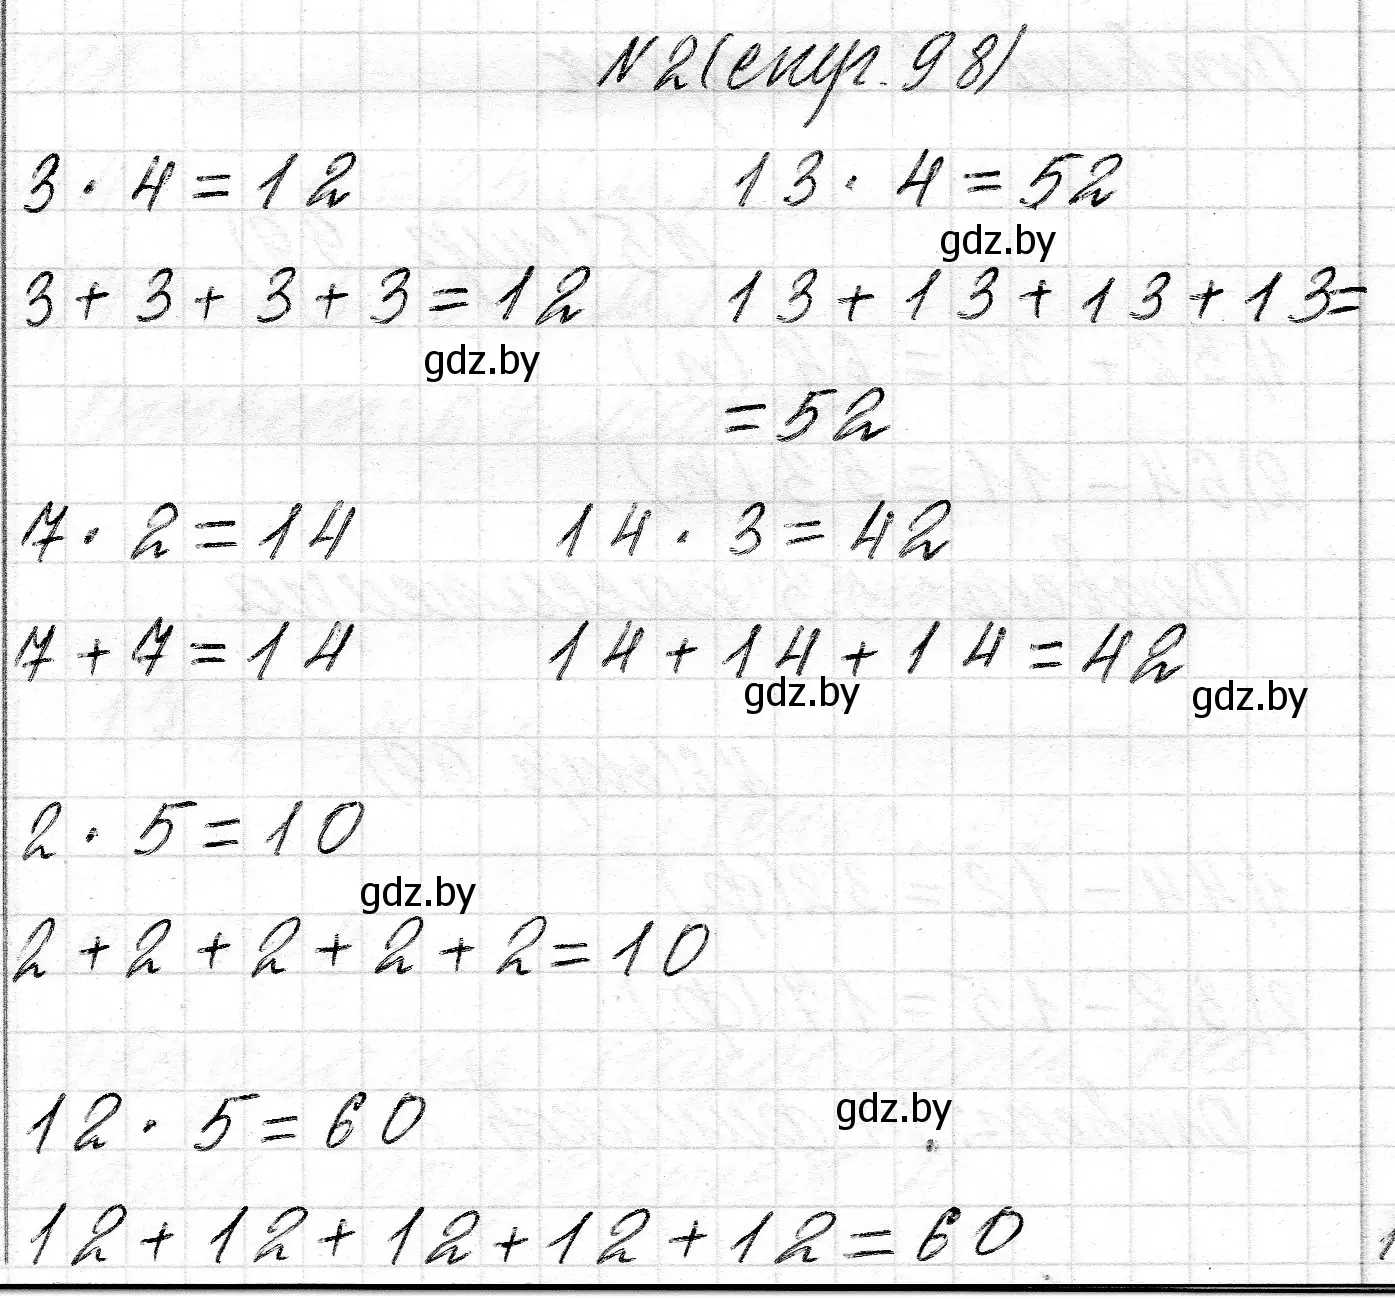 N2(стр. 98)
3 · 4 = 12 13 · 4 = 52
gdz.by
3 + 3 + 3 + 3 = 12 13 + 13 + 13 + 13 =
gdz.by
= 52
7 · 2 = 14 14 · 3 = 42
7 + 7 = 14 14 + 14 + 14 = 42
gdz.by gdz.by
2 · 5 = 10
gdz.by
2 + 2 + 2 + 2 + 2 = 10
12 · 5 = 60
gdz.by
12 + 12 + 12 + 12 + 12 = 60